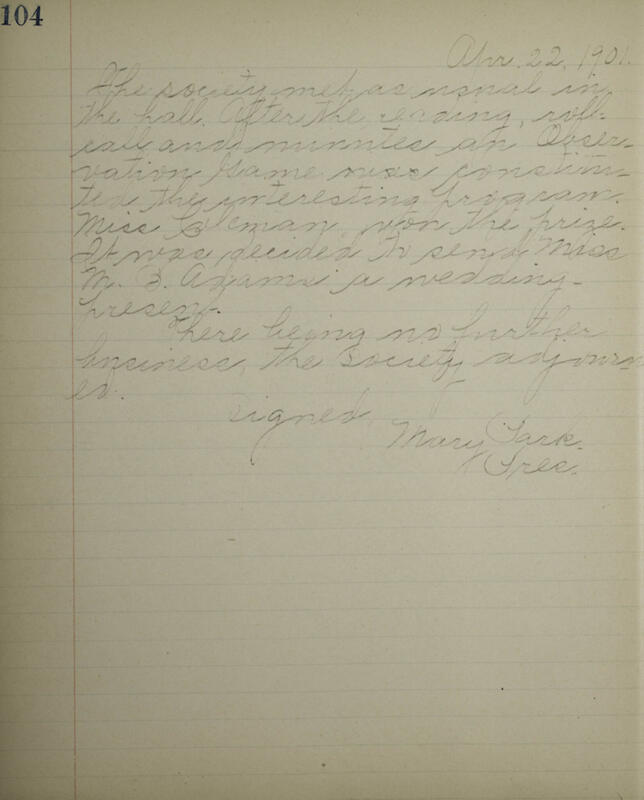 104
Apr. 22, 1901.
The society met as usual in
the hall. After the reading, roll-
call and minutes an Obser-
vation Game was constitu-
ted the interesting program.
Miss Coleman won the prize.
It was decided to send Miss
M. B. Adams a wedding-
present.
There being no further
business, the society adjourn-
ed.
Signed,
Mary Park.
Pres.